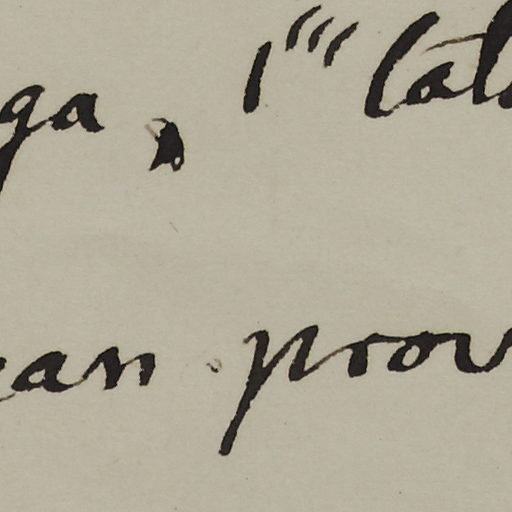 ga, 1''' lat
ean prov